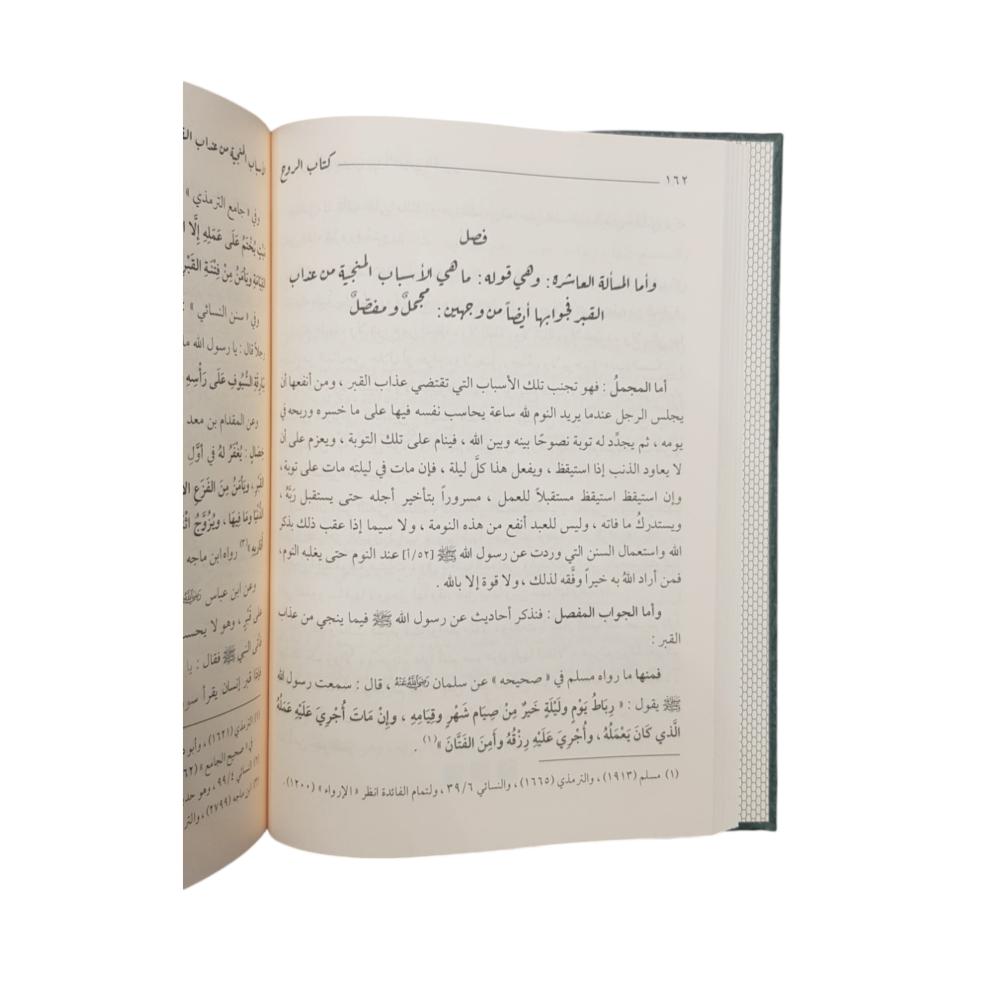 ١٦٢ كتاب الروح
فصل
وأما المسألة العاشرة: وهي قوله: ما هي الأسباب المنجية من عذاب
القبر فجوابها أيضاً من وجهين: مجملٌ و مفصّلٌ
أما المجملُ : فهو تجنب تلك الأسباب التي تقتضي عذاب القبر ، ومن أنفعها أن
يجلس الرجل عندما يريد النوم لله ساعة يحاسب نفسه فيها على ما خسره وربحه في
يومه ، ثم يجدِّد له توبة نصوحًا بينه وبين الله ، فينام على تلك التوبة ، ويعزم على أن
لا يعاود الذنب إذا استيقظ ، ويفعل هذا كلَّ ليلة ، فإن مات في ليلته مات على توبة،
وإن استيقظ استيقظ مستقبلاً للعمل ، مسروراً بتأخير أجله حتى يستقبل ربَّهُ ،
ويستدركُ ما فاته ، وليس للعبد أنفع من هذه النومة ، ولا سيما إذا عقب ذلك بذكر
الله واستعمال السنن التي وردت عن رسول الله ﷺ [٥٢/أ] عند النوم حتى يغلبه النوم،
فمن أراد اللهُ به خيراً وفَّقه لذلك ، ولا قوة إلا بالله .
وأما الجواب المفصل : فنذكر أحاديث عن رسول الله ﷺ فيما ينجي من عذاب
القبر :
فمنها ما رواه مسلم في « صحيحه » عن سلمان رَضِيَ اللَّهُ عَنْهُ ، قال : سمعت رسول الله
ﷺ يقول : « رِبَاطُ يَوْمٍ ولَيْلَةٍ خَيرٌ مِنْ صِيَامِ شَهْرٍ وقِيَامِهِ ، وإِنْ مَاتَ أُجْرِيَ عَلَيْهِ عَمَلُهُ
الَّذي كَانَ يَعْمَلُهُ ، وأُجْرِيَ عَلَيْهِ رِزْقُهُ وأَمِنَ الفَتَّانَ »(١) .
(١) مسلم (١٩١٣) ، والترمذي (١٦٦٥) ، والنسائي ٣٩/٦ ، ولتمام الفائدة انظر « الإرواء » (١٢٠٠).
الأسباب المنجية من عذاب
وفي « جامع الترمذي »
يُخْتَمُ عَلَى عَمَلِهِ إِلَّا
ويَأْمَنُ مِنْ فِتْنَةِ القَبْرِ
وفي « سنن النسائي » :
قال : يا رسول الله
السُّيُوفِ عَلَى رَأْسِهِ
وعن المقدام بن معد
خصالٍ : يُغْفَرُ لَهُ في أوَّلِ
القَبْرِ ، ويَأْمَنُ مِنَ الفَزَعِ
الدُّنْيَا ومَا فِيهَا ، ويُزَوَّجُ
(٣) رواه ابن ماجه
وعن ابن عباس
على قَبْرٍ ، وهو لا يحسب
النبي ﷺ فقال : يا
قبر إنسان يقرأ
(١) الترمذي (١٦٢١) ، وأبو
« صحيح الجامع »
(٢) النسائي ٩٩/٤ ، وهو
(٣) ابن ماجه (٢٧٩٩) ،